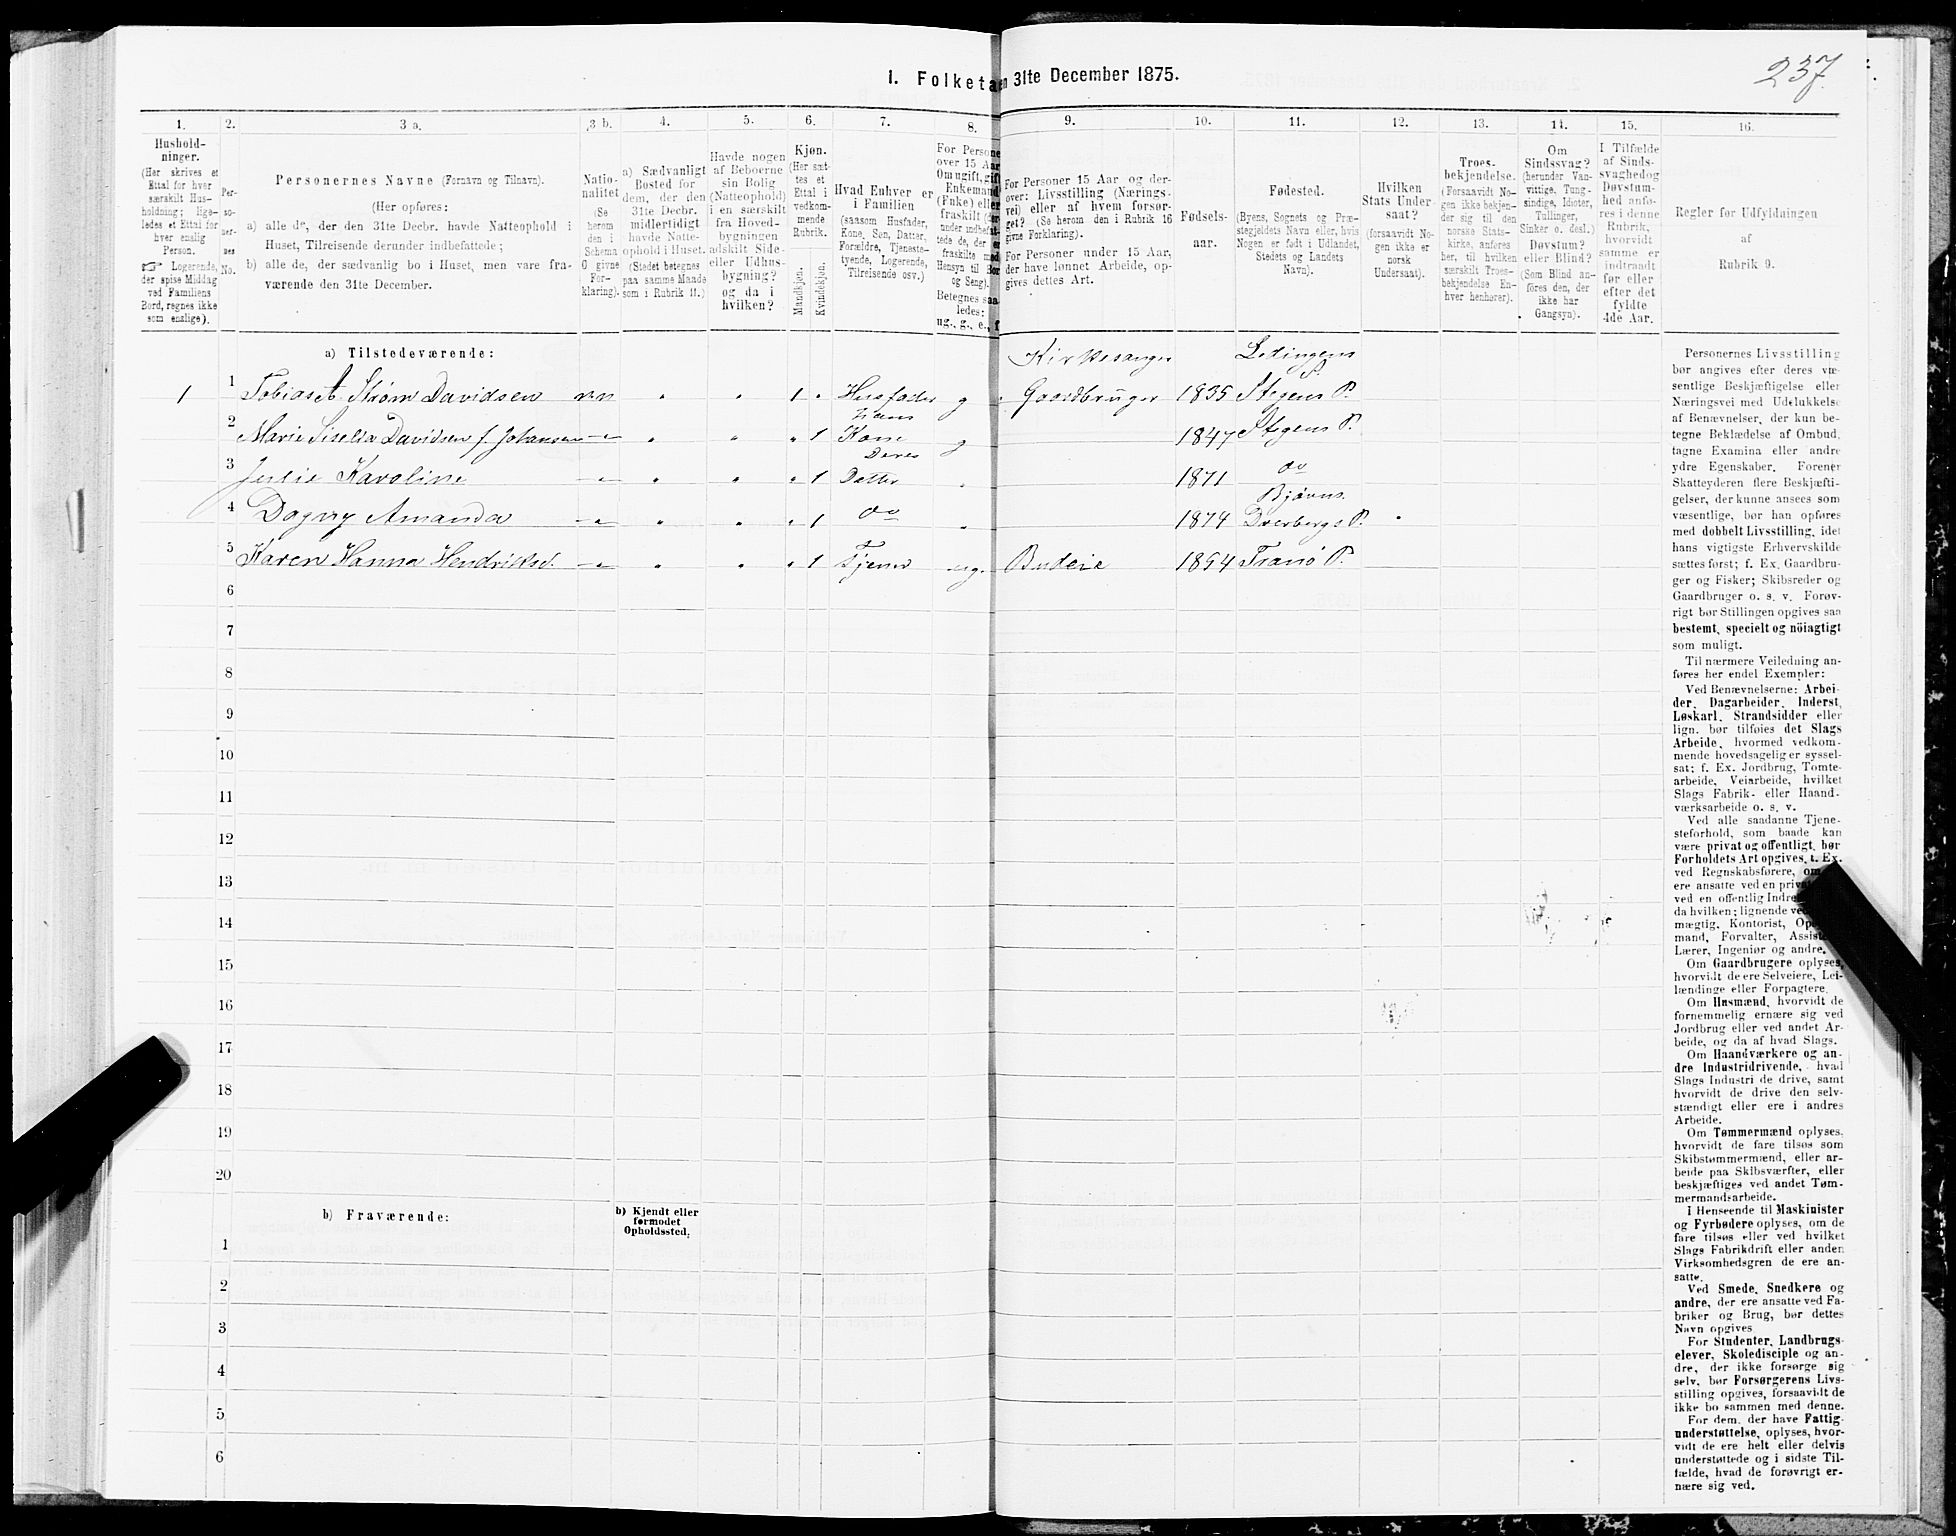 237.
I. Folketa en 31te December 1875.
1. 2. 3 a. 3 b. 4. 5. 6. 7. 8. 9. 10. 11. 12. 13. 14. 15. 16.
Hushold-
ninger.
(Her skrives et
Ettal for hver
særskilt Hus-
holdning; lige-
ledes et Ettal for
hver enslig
Person.
☞ Logerende,
der spise Middag
ved Familiens
Bord, regnes ikke
som enslige).
Per-
so-
ner-
nes
No.
Personernes Navne (Fornavn og Tilnavn).
(Her opføres:
a) alle de, der den 31te Decbr. havde Natteophold i
Huset, Tilreisende derunder indbefattede;
b) alle de, der sædvanlig bo i Huset, men vare fra-
værende den 31te December.
Natio-
nalitet
(Se
herom
den i
Schema
O givne
For-
klaring).
a) Sædvanligt
Bosted for
dem, der den
31te Decbr.
midlertidigt
havde Natte-
ophold i Huset.
(Stedet betegnes
paa samme Maade
som i Rubrik 11.)
Havde nogen
af Beboerne
sin Bolig
(Natteophold)
i en særskilt
fra Hoved-
bygningen
adskilt Side-
eller Udhus-
bygning?
og da i
hvilken?
Kjøn.
(Her sæt-
tes et
Ettal i
vedkom-
mende
Rubrik.
Mandkjøn.
Kvindekjøn.
Hvad Enhver er
i Familien
(saasom Husfader,
Kone, Søn, Datter,
Forældre, Tjeneste-
tyende, Logerende,
Tilreisende osv.)
For Persone
over 15 Aar
Om ugift, gift
Enkemand
(Enke) elle
fraskilt (der
under indbefat-
tede de, der er
fraskilte med
Hensyn til Bor
og Seng).
Betegnes saa
ledes:
ug., g., e., f
For Personer 15 Aar og der-
over: Livsstilling (Nærings-
vei) eller af hvem forsør-
get? (Se herom den i Rubrik 16
givne Forklaring).
For Personer under 15 Aar,
der have lønnet Arbeide, op-
gives dettes Art.
Fødsels-
aar.
Fødested.
(Byens, Sognets og Præ-
stegjeldets Navn eller, hvis
Nogen er født i Udlandet,
Stedets og Landets
Navn).
Hvilken
Stats Under-
saat?
(forsaavidt No-
gen ikke er
norsk
Undersaat).
Troes-
bekjendelse.
(Forsaavidt No-
gen ikke bekjen-
der sig til den
norske Stats-
kirke, anføres
her, til hvilken
særskilt Troes-
bekjendelse En-
hver henhører).
Om
Sindssvag?
(herunder Van-
vittige, Tung-
sindige, Idioter,
Tullinger,
Sinker o. desl.)
Døvstum?
eller Blind?
(Som Blind an-
føres den, der
ikke har
Gangsyn).
I Tilfælde
af Sinds-
svaghed og
Døvstum-
hed anfø-
res i denne
Rubrik,
hvorvidt
samme er
indtraadt
før eller
efter det
fyldte
4de Aar.
Regler for Udfyldningen
af
Rubrik 9.
a) Tilstedeværende:
Kirkesanger Lødingens
1 1 Tobias A. Strøm Davidsen nn " " 1 " Husfader g Gaardbruger 1835 Stegens P.
2 Marie Siselia Davidsen f. Johansen -"- " " " 1 hans Kone g 1847 Stegens P.
3 Julie Karoline -"- " " " 1 Deres Datter " 1871 do
4 Dagny Amanda -"- " " " 1 do " 1874 Bjørns. Dverbergs P. "
5 Karen Hanna Hendriksd. -"- " " " 1 Tjener ug. Budeie 1854 Tranø P.
6
7
8
9
10
11
12
13
14
15
16
17
18
19
20
b) Fraværende:
b) Kjendt eller
formodet
Opholdssted.
1
2
3
4
5
6
Personernes Livsstilling
bør angives efter deres væ-
sentlige Beskjæftigelse eller
Næringsvei med Udelukkelse
af Benævnelser, der kun be-
tegne Beklædelse af Ombud,
tagne Examina eller andre
ydre Egenskaber. Forener
Skatteyderen flere Beskjæfti-
gelser, der kunne ansees som
væsentlige, bør han opføres
med dobbelt Livsstilling, idet
hans vigtigste Erhvervskilde
sættes først; f. Ex. Gaardbru-
ger og Fisker; Skibsreder og
Gaardbruger o. s. v. Forøv-
rigt bør Stillingen opgives saa
bestemt, specielt og nöiagtigt
som muligt.
Til nærmere Veiledning an-
føres her endel Exempler:
Ved Benævnelserne: Arbei-
der, Dagarbeider, Inderst,
Løskarl, Strandsidder eller
lign. bør tilføies det Slags
Arbeide, hvormed vedkom-
mende hovedsagelig er syssel-
sat; f. Ex. Jordbrug, Tomte-
arbeide, Veiarbeide, hvilket
Slags Fabrik- eller Haand-
værksarbeide o. s. v.
Ved alle saadanne Tjene-
steforhold, som baade kan
være privat og offentligt, bør
Forholdets Art opgives, t. Ex.
ved Regnskabsførere, om
ere ansatte ved en privat
ved en offentlig Indre
da hvilken; lignende ved
mægtig, Kontorist, Op
mand, Forvalter, Assiste
Lærer, Ingeniør og andre.
Om Gaardbrugere oplyses,
hvorvidt de ere Selveiere, Lei-
lændinge eller Forpagtere.
Om Husmænd, hvorvidt de
fornemmelig ernære sig ved
Jordbrug eller ved andet Ar-
beide, og da af hvad Slags.
Om Haandværkere og an-
dre Industridrivende, hvad
Slags Industri de drive, samt
hvorvidt de drive den selv-
stændigt eller ere i andres
Arbeide.
Om Tømmermænd oplyses,
hvorvidt de fare tilsøs som
Skibstømmermænd, eller ar-
beide paa Skibsværfter, eller
beskjæftiges ved andet Tøm-
mermandsarbeide.
I Henseende til Maskinister
og Fyrbødere oplyses, om de
fare tilsøs eller ved hvilket
Slags Fabrikdrift eller anden
Virksomhedsgren de ere an-
satte.
Ved Smede, Snedkere og
andre, der ere ansatte ved Fa-
briker og Brug, bør dettes
Navn opgives
For Studenter, Landbrugs-
elever, Skoledisciple og an-
dre, der ikke forsørge sig
selv, bør Forsørgerens Livs-
stilling opgives, forsaavidt de
ikke bo sammen med denne.
For dem, der have Fattig-
understøttelse, oplyses, hvor-
vidt de ere helt eller delvis
understøttede og i sidste Til-
fælde, hvad de forøvrigt er-
nære sig ved.